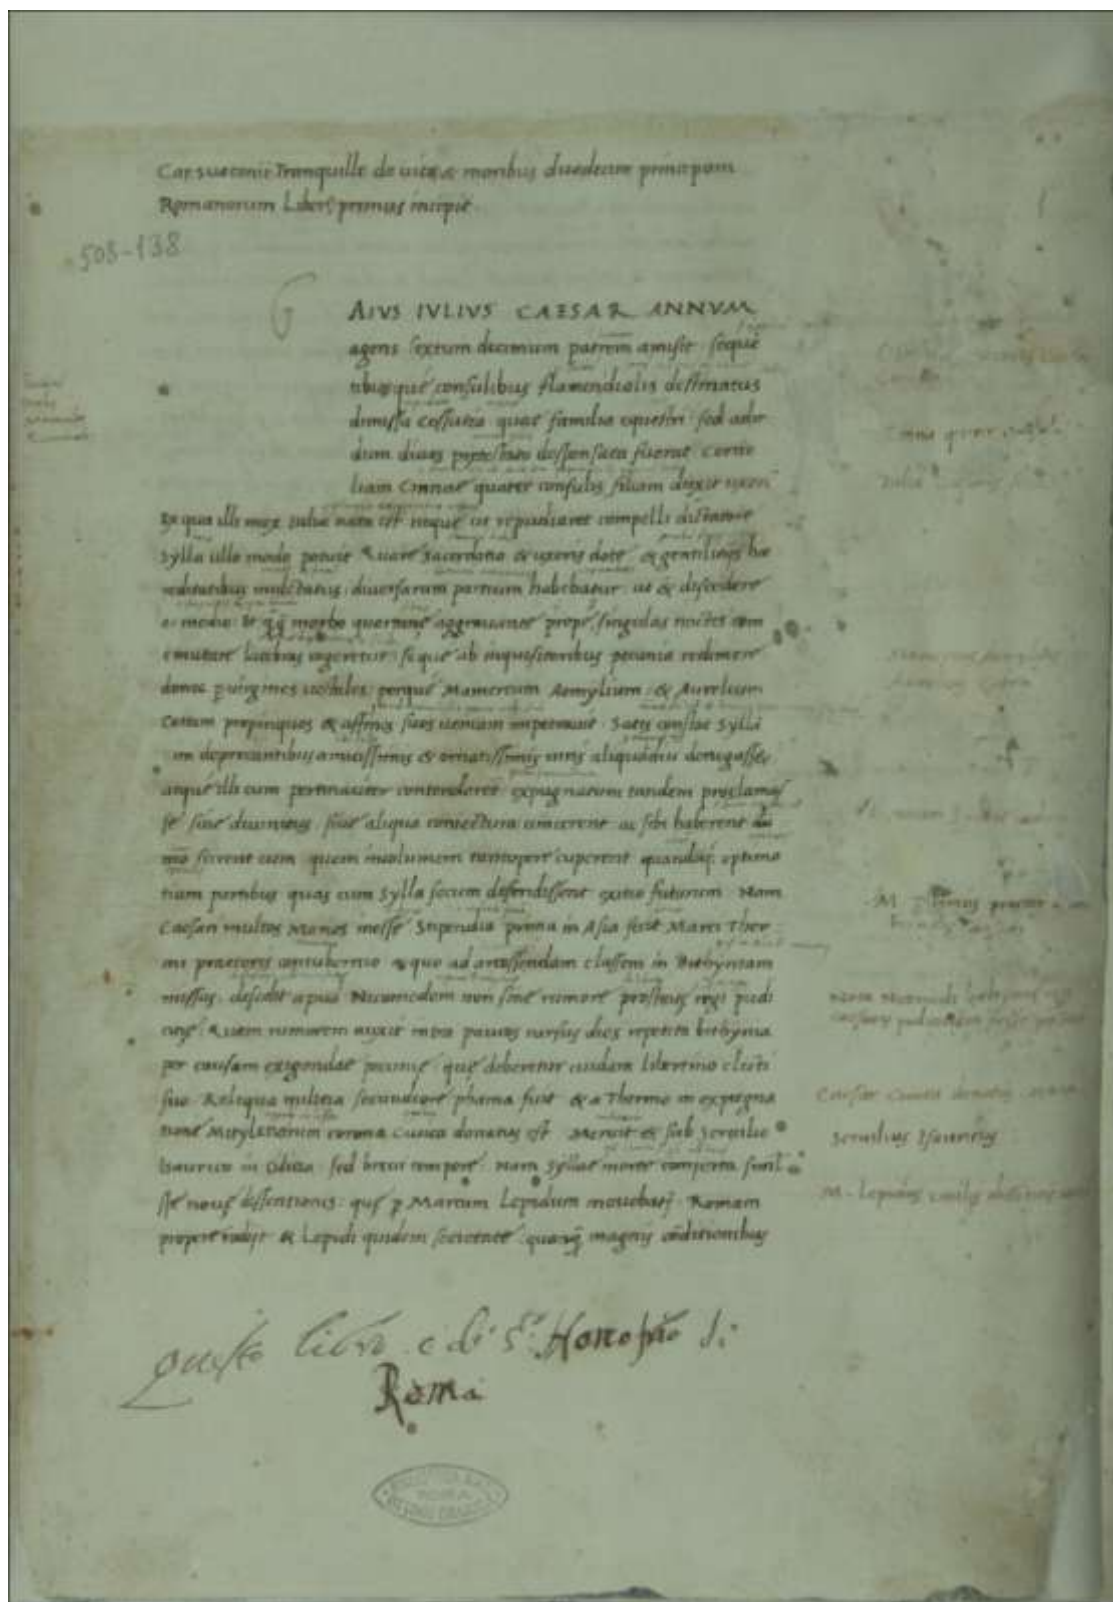 Cai suetonii Tranquilli de uita & moribus duodecim principum
Romanorum Liber primus incipit
508-138
G
AIVS IVLIVS CAESAR ANNVM
agens sextum decimum patrem amisit sequē
tibusque consulibus flamendialis destinatus
dimissa Cossutia quae familia equestri sed ad
dum diues pretextato desponsata fuerat Corne
liam Cinnae quater consulis filiam duxit uxorē
Ex qua illi mox iulia nata est neque ut repudiaret compelli dictatore
Sylla ullo modo potuit Quare sacerdotio & uxoris dote & gentilitijs hæ
reditatibus mulctatus diuersarum partium habebatur ut & discedere
e medio & qq̄ morbo quartane aggrauante prope singulas noctes com
mutare latebras cogeretur seque ab inquisitoribus pecunia redimere
donec p uirgines uestales perque Mamercum Aemylium & Aurelium
Cottam propinquos & affines suos ueniam impetrauit Satis constat Syllā
cum deprecantibus amicissimis & ornatissimis uiris aliquādiu denegasset
atque illi cum pertinaciter contenderēt expugnatum tandem proclamas
se siue diuinitus siue aliqua coniectura uincerent ac sibi haberent dū
mō scirent eum quem incolumem tantopere cuperent quandoq; optima
tium partibus quas cum Sylla secum defendissent exitio futurum Nam
Caesari multos Marios inesse Stipendia prima in Asia fecit Marci Ther
mi praetoris contubernio a quo ad arcessendam classem in Bithyniam
missus desedit apud Nicomedem non sine rumore prostratę regi pudi
citię Quem rumorem auxit intra paucos rursus dies repetita bithynia
per causam exigendae pecunię quę deberetur cuidam libertino clienti
suo Reliqua militia secundiore phama fuit & a Thermo in expugna
tione Mitylenarum corona Ciuica donatus est Meruit & sub Seruilio
Isaurico in Cilicia sed breui tempore Nam Syllae morte comperta simul
spe nouę dissentionis quę p Marcum Lepidum mouebatᷣ Romam
propere redijt & Lepidi quidem societate quanq̄ magnis cōditionibus
Cinna quater consul
M. praetor
Nicomedi
Caesar Ciuica donatus
Seruilius Isauricus
M. Lepidus
questo libro e di Sto Honofrio di
Roma
ROMA